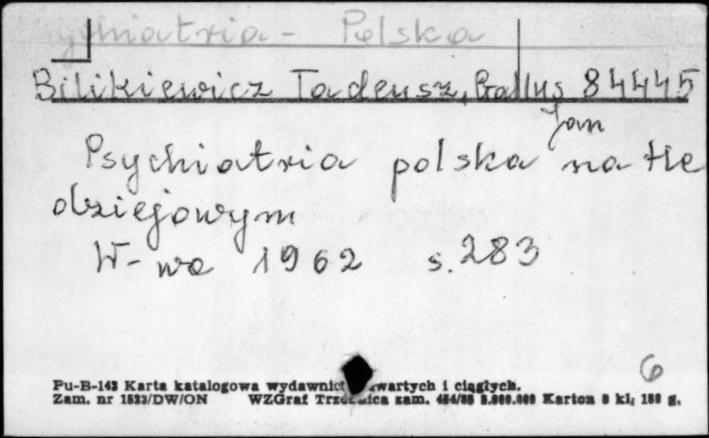 Psychiatria - Polska
Bilikiewicz Tadeusz, Gallus 84445
Jan
Psychiatria polska na tle
dziejowym
W-wa 1962 s. 283
6
Pu-B-143 Karta katalogowa wydawnictw zwartych i ciągłych.
Zam. nr 1533/DW/ON WZGraf Trzebnica zam. Karton kl. g.